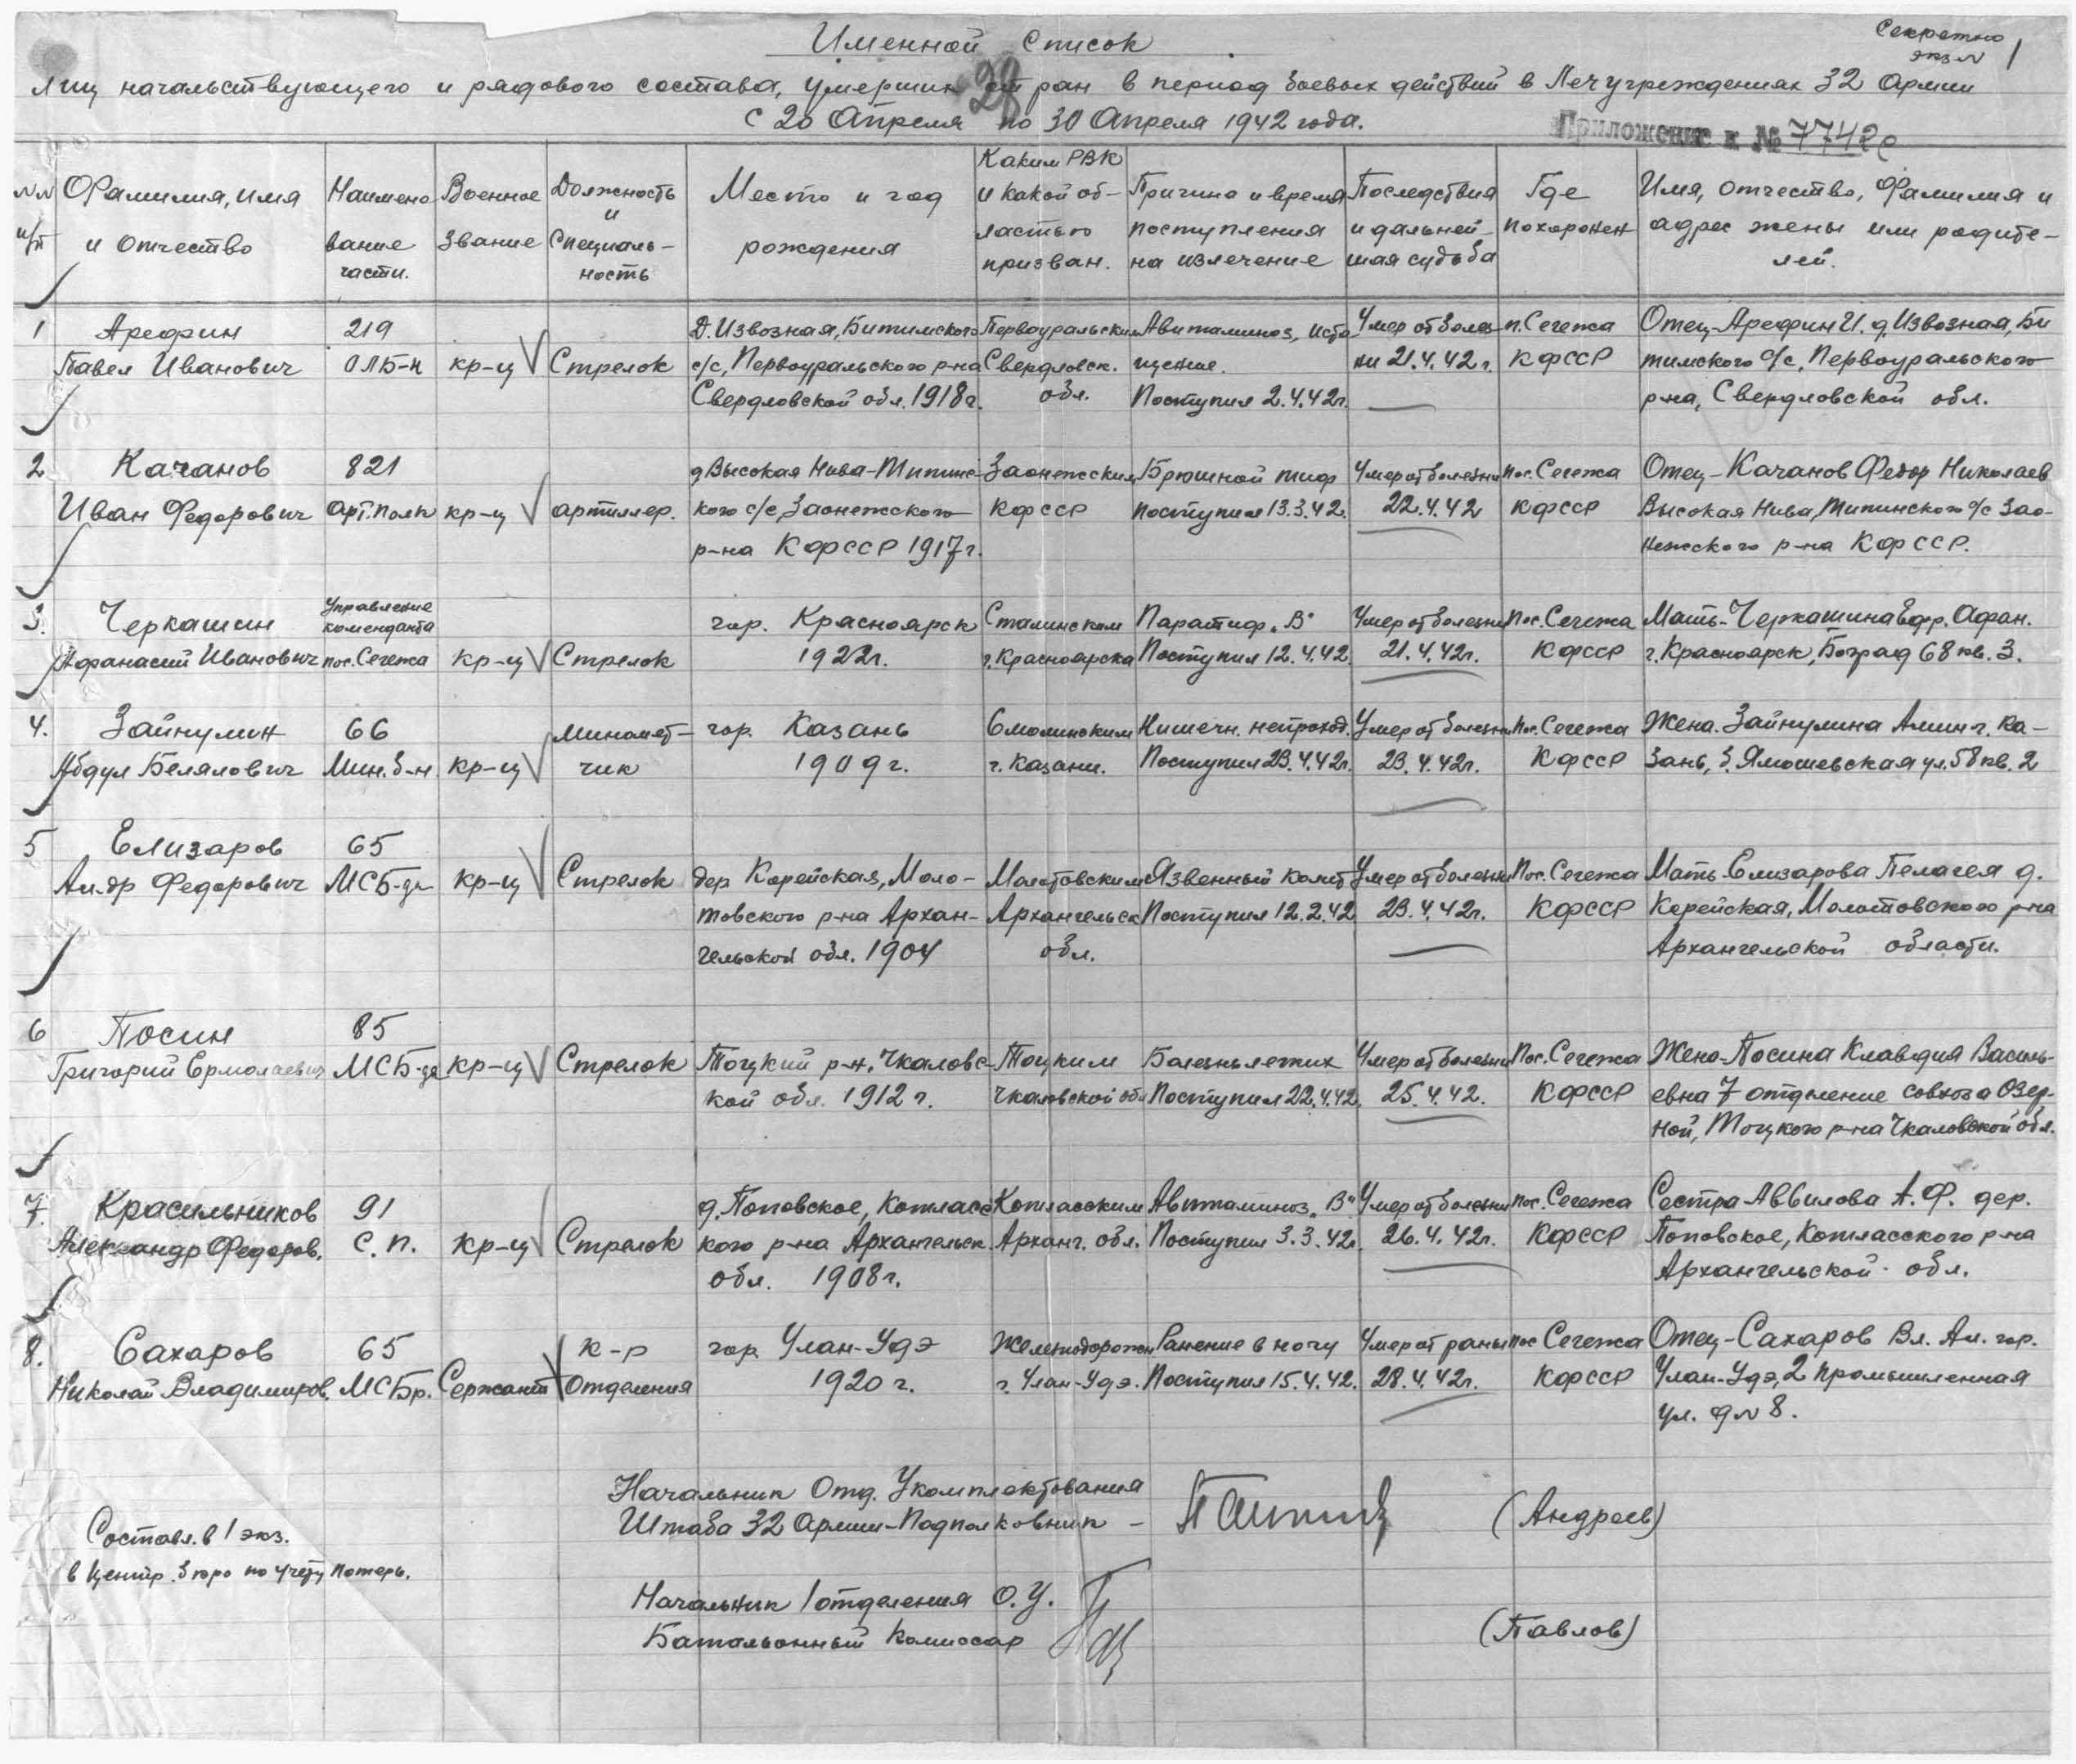 Секретно
экз № 1
Именной список
лиц начальствующего и рядового состава, умерших от ран в период боевых действий в Лечучреждениях 32 Армии
28
с 20 Апреля по 30 Апреля 1942 года.
Приложение к № 7742с
№№ п/п
Фамилия, имя и отчество
Наименование части.
Военное звание
Должность и специальность
Место и год рождения
Каким РВК и какой областью призван.
Причина и время поступления на излечение
Последствия и дальнейшая судьба
Где похоронен
Имя, отчество, Фамилия и адрес жены или родителей.
1 Арефин 219 Д. Извозная, Битимского Первоуральским Авитаминоз, исто Умер от болез- п. Сегежа Отец-Арефин И. д. Извозная, Би
Павел Иванович ОЛБ-н кр-ц Стрелок с/с, Первоуральского р-на Свердловск. щение. ни 21.4.42 г. КФССР тимского с/с, Первоуральского
Свердловской обл. 1918 г. обл. Поступил 2.4.42 г. р-на, Свердловской обл.
2 Качанов 821 д Высокая Нива-Типинс- Заонежским Брюшной тиф Умер от болезни пос. Сегежа Отец-Качанов Федор Николаев
Иван Федорович Арт. полк кр-ц артиллер. кого с/с, Заонежского КФССР поступил 13.3.42. 22.4.42 КФССР Высокая Нива, Типинского с/с Зао-
р-на КФССР 1917 г. нежского р-на КФССР.
3. Черкашин Управление коменданта гор. Красноярск Сталинским Паратиф „В" Умер от болезни Пос. Сегежа Мать-Черкашина Ефр. Афан.
Афанасий Иванович пос. Сегежа кр-ц Стрелок 1922 г. г. Красноярска Поступил 12.4.42 21.4.42 г. КФССР г. Красноярск, Боград 68 кв. 3.
4. Зайнулин 66 миномет- гор. Казань Смолинским Кишечн. непроход. Умер от болезни Пос. Сегежа Жена. Зайнулина Амин г. Ка-
Абдул Белялович Мин. б-н кр-ц чик 1909 г. г. Казани. Поступил 23.4.42 г. 23.4.42 г. КФССР зань, Б. Ямошевская ул. 58 кв. 2
5 Елизаров 65
Ал-др Федорович МСБ-да кр-ц Стрелок дер Корейская, Моло- Молотовским Язвенный колит Умер от болезни Пос. Сегежа Мать Елизарова Пелагея д.
товского р-на Архан- Архангельск Поступил 12.2.42 23.4.42 г. КФССР Корейская, Молотовского р-на
гельской обл. 1904 обл. Архангельской области.
6 Посин 85
Григорий Ермолаевич МСБ-да кр-ц Стрелок Тоцкий р-н, Чкаловс- Тоцким Болезнь легких Умер от болезни Пос. Сегежа Жена-Посина Клавдия Василь-
кой обл. 1912 г. Чкаловской обл Поступил 22.4.42. 25.4.42. КФССР евна 7 отделение совхоза Озер-
ной, Тоцкого р-на Чкаловской обл.
7. Красильников 91 д. Поповское, Котласс Котласским Авитаминоз „В" Умер от болезни пос. Сегежа Сестра Аввилова А. Ф. дер.
Александр Федоров. С. п. кр-ц Стрелок кого р-на Архангельск. Арханг. обл. Поступил 3.3.42 г. 26.4.42 г. КФССР Поповское, Котласского р-на
обл. 1908 г. Архангельской обл.
8. Сахаров 65 к-р гор. Улан-Удэ Железнодорожн Ранение в ногу Умер от раны пос Сегежа Отец-Сахаров Вл. Ал. гор.
Николай Владимиров. МСБр. Сержант Отделения 1920 г. г. Улан-Удэ. Поступил 15.4.42. 28.4.42 г. КФССР Улан-Удэ, 2 Промышленная
ул. д № 8.
Начальник Отд. Укомплектования
Штаба 32 Армии-Подполковник - (Андреев)
Составл. в 1 экз.
в Центр. Бюро по учету потерь.
Начальник 1 отделения О. У.
Батальонный Комиссар (Павлов)